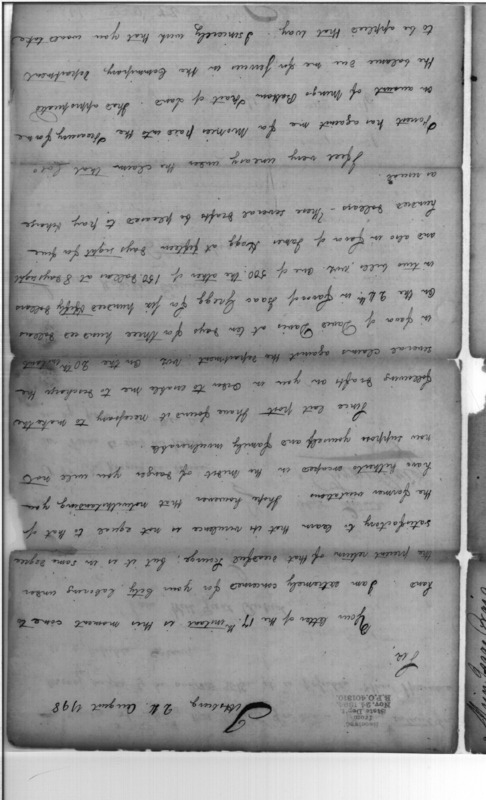 Pittsburg 24 August 1798
Received
from
State Dept
Nov. 24 1894
R.P.O. 401810.
Sir,
Your letter of the 17th instant is this moment come to
hand I am extremely concerned for your City laboring under
the present return of that dreadful Scourge; but it is in some degree
satisfactory to learn that its virulence is not equal to that of
the former visitations I hope however that notwithstanding you
have hitherto escaped in the midst of danger you will not
now suppose yourself and family invulnerable.
Since last post I have found it necessary to make the
following drafts on you in order to enable me to discharge the
several claims against the department viz. On the 20th instant
in favor of David Davis at ten days for three hundred dollars
On the 24th in favor of Isaac Gregg for six hundred fifty dollars
in two bills viz. one of 500 the other of 150 dollars at 8 days sight
and also in favor of James at fifteen days sight for five
hundred dollars - These several drafts be pleased to pay &charge
as usual.
I feel very uneasy under the claim that Evan
has against me for Monies paid into the Treasury for me
on account of Mingo Bottom Tract of Land. This appropriates
the balance due me for Services in the department
to be applied that way. I sincerely wish that you would take